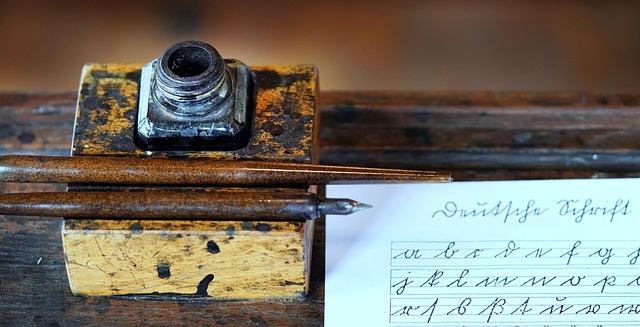 Deutsche Schrift
a b c d e f g
j k l m n o p
r ſ s ß t u v w